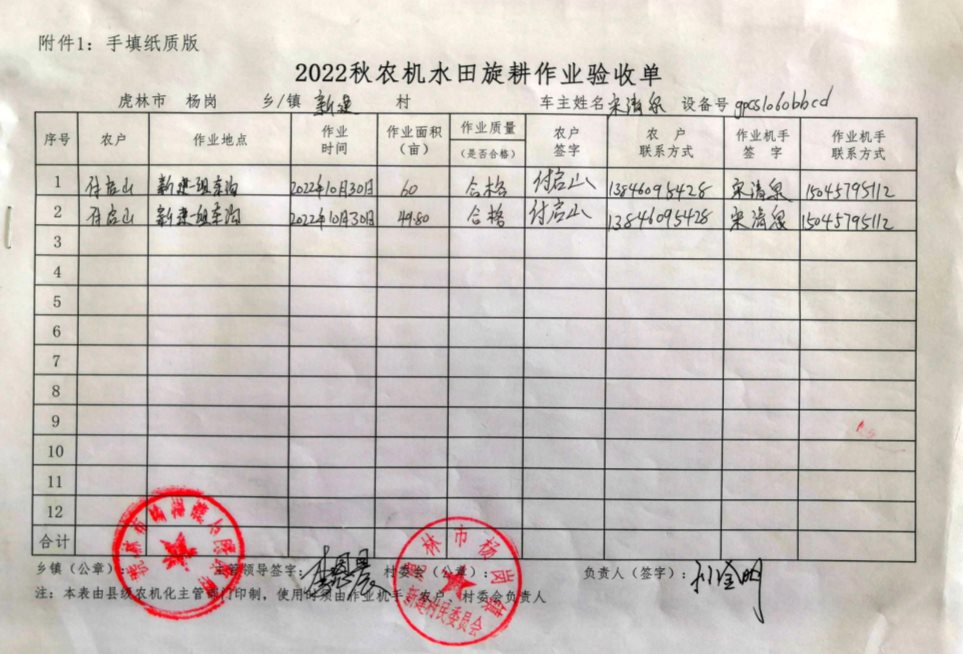 附件1：手填纸质版
2022秋农机水田旋耕作业验收单
虎林市 杨岗 乡/镇 新建 村 车主姓名 宋清泉 设备号 gpcs1060bbcd
序号 农户 作业地点 作业时间 作业面积（亩） 作业质量（是否合格） 农户签字 农户联系方式 作业机手签字 作业机手联系方式
1 付启山 新建一组东沟 2022年10月30日 60 合格 付启山 13846095428 宋清泉 15045795112
2 付启山 新建一组东沟 2022年10月30日 49.80 合格 付启山 13846095428 宋清泉 15045795112
3
4
5
6
7
8
9
10
11
12
合计
乡镇（公章）： 主管领导签字： 村委会（公章）： 负责人（签字）：
注：本表由县级农机化主管部门印制，使用时须由作业机手、农户、村委会负责人
虎林市杨岗镇人民政府
虎林市杨岗镇
新建村民委员会